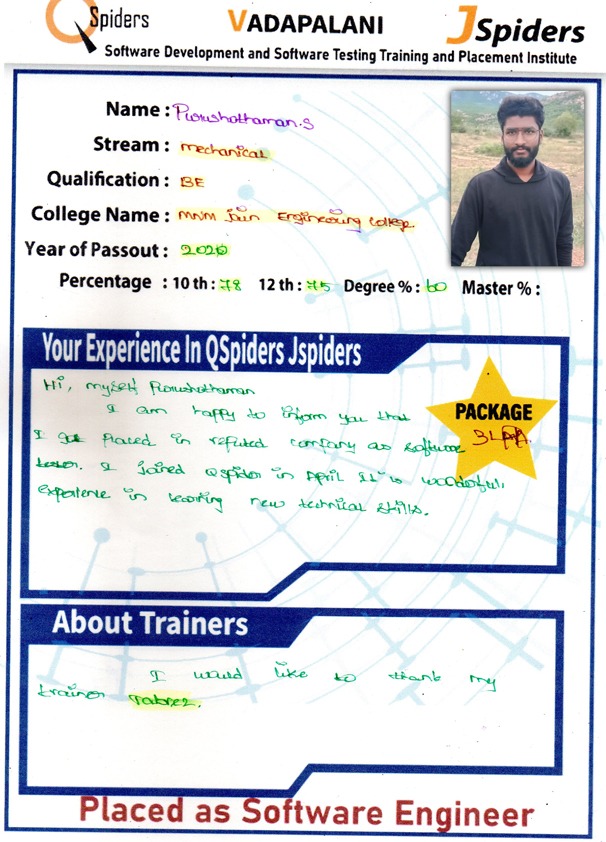 QSpiders VADAPALANI JSpiders
Software Development and Software Testing Training and Placement Institute
Name : Purushothaman.S
Stream : mechanical
Qualification : BE
College Name : MNM Jain Engineering College
Year of Passout : 2020
Percentage : 10 th : 78 12 th : 75 Degree % : 60 Master % :
Your Experience In QSpiders Jspiders
Hi, myself Purushothaman
I am happy to inform you that
I got placed in reputed company as software
tester. I joined Qspider in April It is wonderful
experience in learning new technical skills.
PACKAGE
3 LPA.
About Trainers
I would like to thank my
trainer Tabrez.
Placed as Software Engineer